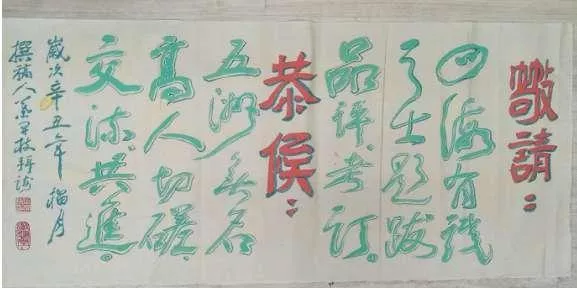 敬請：
四海有識
之士題跋
品評、考訂。
恭候：
五湖無名
高人切磋、
交流、共進。
歲次辛丑年 月
撰稿人